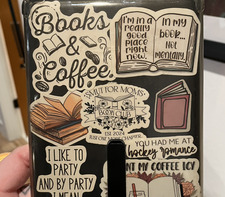 Books
&
Coffee
I'm in a
really
good
place
right
now.
In my
book...
not
mentally.
SMUT FOR MOMS
BOOK CLUB
EST. 2024
I LIKE TO
PARTY
AND BY PARTY
I MEAN
YOU HAD ME AT
hockey romance
MY COFFEE ICY